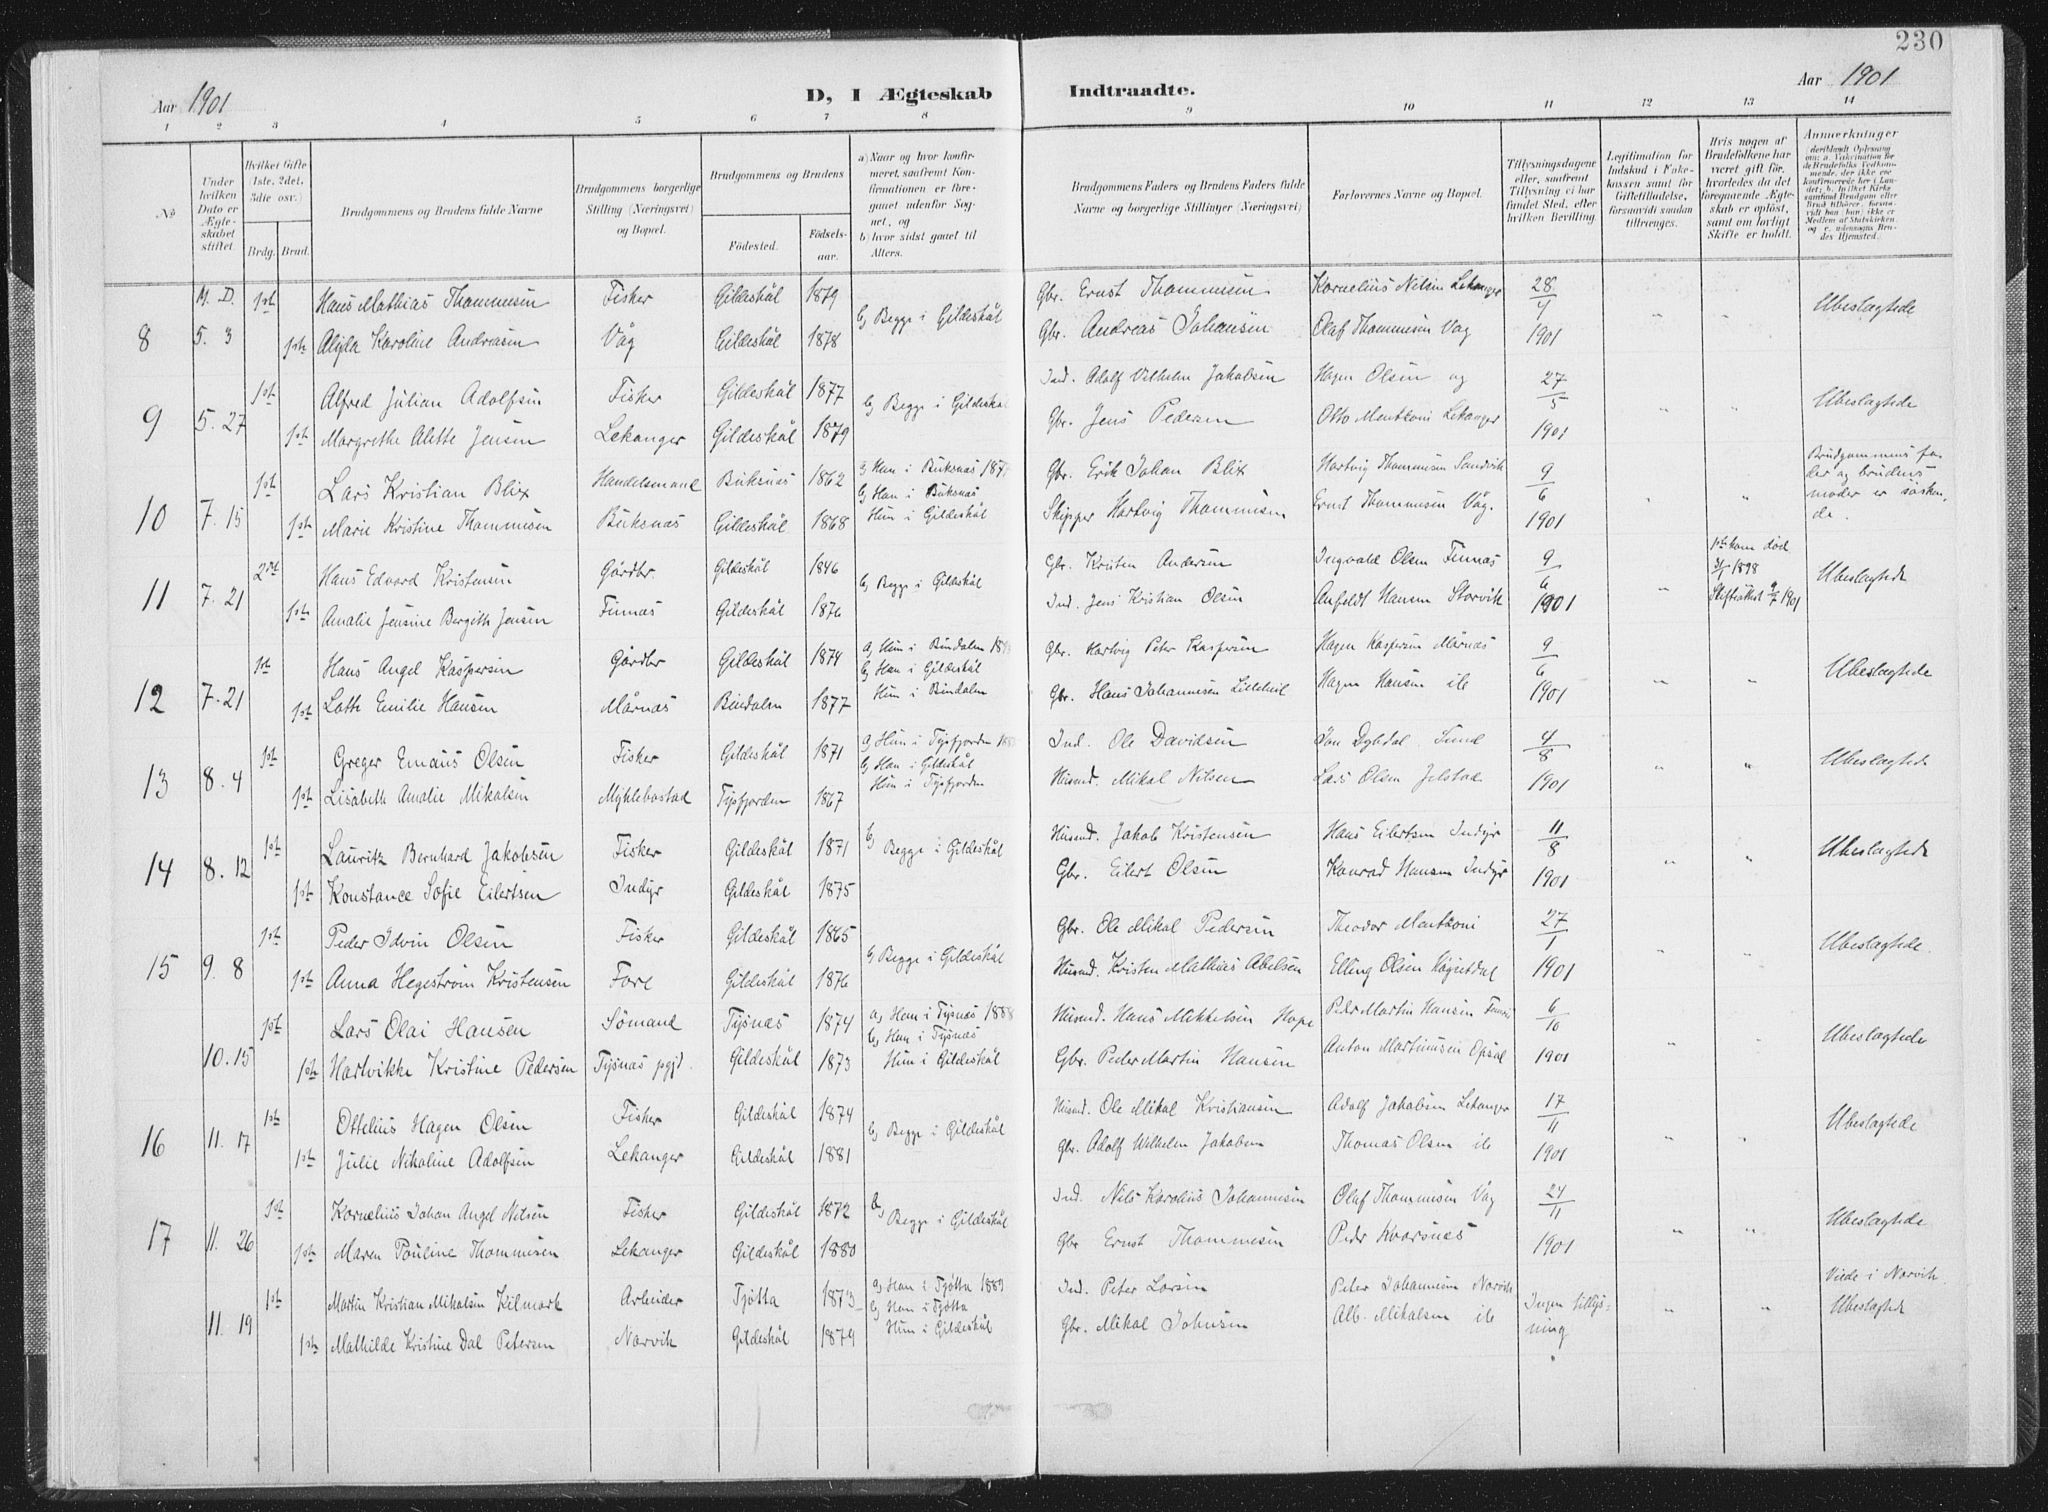 230
Aar 1901
D, I Ægteskab Indtraadte.
Aar 1901
1 2 3 4 5 6 7 8 9 10 11 12 13 14
No
Under hvilken Dato er Ægteskabet stiftet.
Hvilket Gifte 1ste, 2det, 3die osv.)
Brdg. Brud.
Brudgommens og Brudens fulde Navne
Brudgommens borgerlige Stilling (Næringsvei) og Bopæl.
Brudgommens og Brudens
Födested. Födsels-aar.
a) Naar og hvor konfirmeret, saafremt Konfirmationen er foregaaet udenfor Sognet, og
b) hvor sidst gaaet til Alters.
Brudgommens Faders og Brudens Faders fulde Navne og borgerlige Stillinger (Næringsvei)
Forlovernes Navne og Bopæl.
Tillysningsdagene eller, saafremt Tillysning ei har fundet Sted, efter hvilken Bevilling.
Legitimation for Indskud i Enkekassen samt for Giftetilladelse, forsaavidt saadan tiltrænges.
Hvis nogen af Brudefolkene har været gift för, hvorledes da det foregaaende Ægteskab er oplöst, samt om lovligt Skifte er holdt.
Anmærkninger
M. D. 1ste Hans Mathias Thommesen Fisker Gildeskål 1879 b) Begge i Gildeskål Gbr. Ernst Thommesen Kornelius Nilsen Lekanger 28/4 Ubeslægtede
8 5. 3 1ste Karoline Andreasen Våg Gildeskål 1878 Gbr. Andreas Johansen Olaf Thommesen Vag 1901
1ste Alfred Julian Adolfsen Fisker Gildeskål 1877 b) Begge i Gildeskål Ind. Adolf Vilhelm Jakobsen Hagen Olsen og 27/5 Ubeslægtede
9 5. 27 1ste Margrethe Alette Jensen Lekanger Gildeskål 1879 Gbr. Jens Pedersen Otto Mentzoni Lekanger 1901
1ste Lars Kristian Blix Handelsmand Buksnæs 1862 a) Han i Buksnæs b) Han i Buksnæs Gbr. Erik Johan Blix Hartvig Thommesen Sandvik 9/6 Brudgommens fader og brudens moder er søskende.
10 7. 15 1ste Marie Kristine Thommesen Buksnæs Gildeskål 1868 Hun i Gildeskål Skipper Hartvig Thommesen Ernst Thommesen Våg. 1901
2det Hans Edvard Kristensen Gårdbr. Gildeskål 1846 b) Begge i Gildeskål Gbr. Kristen Andersen Ingvald Olsen Finnæs 9/6 1ste kone død 1898 Ubeslægtede
11 7. 21 1ste Amalie Jensine Bergithe Jensen Finnæs Gildeskål 1876 Ind. Jens Kristian Olsen Anfeldt Hansen Storvik 1901 Skifteattest 9/7 1901
1ste Hans Angel Kaspersen Gårdbr Gildeskål 1874 a) Hun i Bindalen b) Han i Gildeskål Gbr. Hartvig Peter Kaspersen Hagen Kaspersen Mårnæs 9/6 Ubeslægtede
12 7. 21 1ste Lotte Emilie Hansen Mårnæs Bindalen 1877 Hun i Bindalen Gbr. Hans Johannesen Hagen Hansen ib 1901
1ste Greger Emaus Olsen Fisker Gildeskål 1871 a) Hun i Tysfjorden b) Han i Gildeskål Ind. Ole Davidsen Jon Dybdal Sund 4/8 Ubeslægtede
13 8. 4 1ste Lisabeth Amalie Mikalsen Myklebostad Tysfjorden 1867 Hun i Tysfjorden Husmd. Mikal Nilsen Lars Olsen Jelstad 1901
1ste Lauritz Bernhard Jakobsen Fisker Gildeskål 1871 b) Begge i Gildeskål Husmd. Jakob Kristensen Hans Eilertsen Indyr 11/8 Ubeslægtede
14 8. 12 1ste Konstance Sofie Eilertsen Indyr Gildeskål 1875 Gbr. Eilert Olsen Konrad Hansen Indyr 1901
1ste Peder Idvin Olsen Fisker Gildeskål 1865 b) Begge i Gildeskål Gbr. Ole Mikal Pedersen Theodor Mentzoni 27/1 Ubeslægtede.
15 9. 8 1ste Anna Hegestrøm Kristensen Fore Gildeskål 1876 Husmd. Kristen Mathias Abelsen Elling Olsen 1901
1ste Lars Olai Hansen Sömand Tysnæs 1874 a) Han i Tysnæs 1888 b) Han i Tysnæs Husmd. Hans Mikkelsen Hope Peder Martin Hansen 6/10 Ubeslægtede
10. 15 1ste Hartvikke Kristine Pedersen Tysnæs pgjd. Gildeskål 1873 Hun i Gildeskål Gbr. Peder Martin Hansen Anton Martinusen Opsal 1901
1ste Ottelius Hagen Olsen Fisker Gildeskål 1874 b) Begge i Gildeskål Husmd. Ole Mikal Kristiansen Adolf Jakobsen Lekanger 17/11 Ubeslægtede
16 11. 17 1ste Julie Nikoline Adolfsen Lekanger Gildeskål 1881 Gbr. Adolf Wilhelm Jakobsen Thomas Olsen ib 1901
1ste Kornelius Johan Angel Nilsen Fisker Gildeskål 1872 b) Begge i Gildeskål Ind. Nils Karolius Johannesen Olaf Thommesen Våg 24/11 Ubeslægtede
17 11. 26 1ste Maren Pouline Thommesen Lekanger Gildeskål 1880 Gbr Ernst Thommesen Peder Kvarsnæs 1901
1ste Martin Kristian Mikalsen Kilmork Arbeider Tjøtta 1873 a) Han i Tjøtta 1889 b) Han i Tjøtta Ind. Peter Larsen Peter Johannesen Narvik Ingen tillysning Viede i Narvik. Ubeslægtede
11. 19 1ste Mathilde Kristine Dal Petersen Narvik Gildeskål 1879 Hun i Gildeskål Gbr. Mikal Johnsen Alb. Mikalsen ib